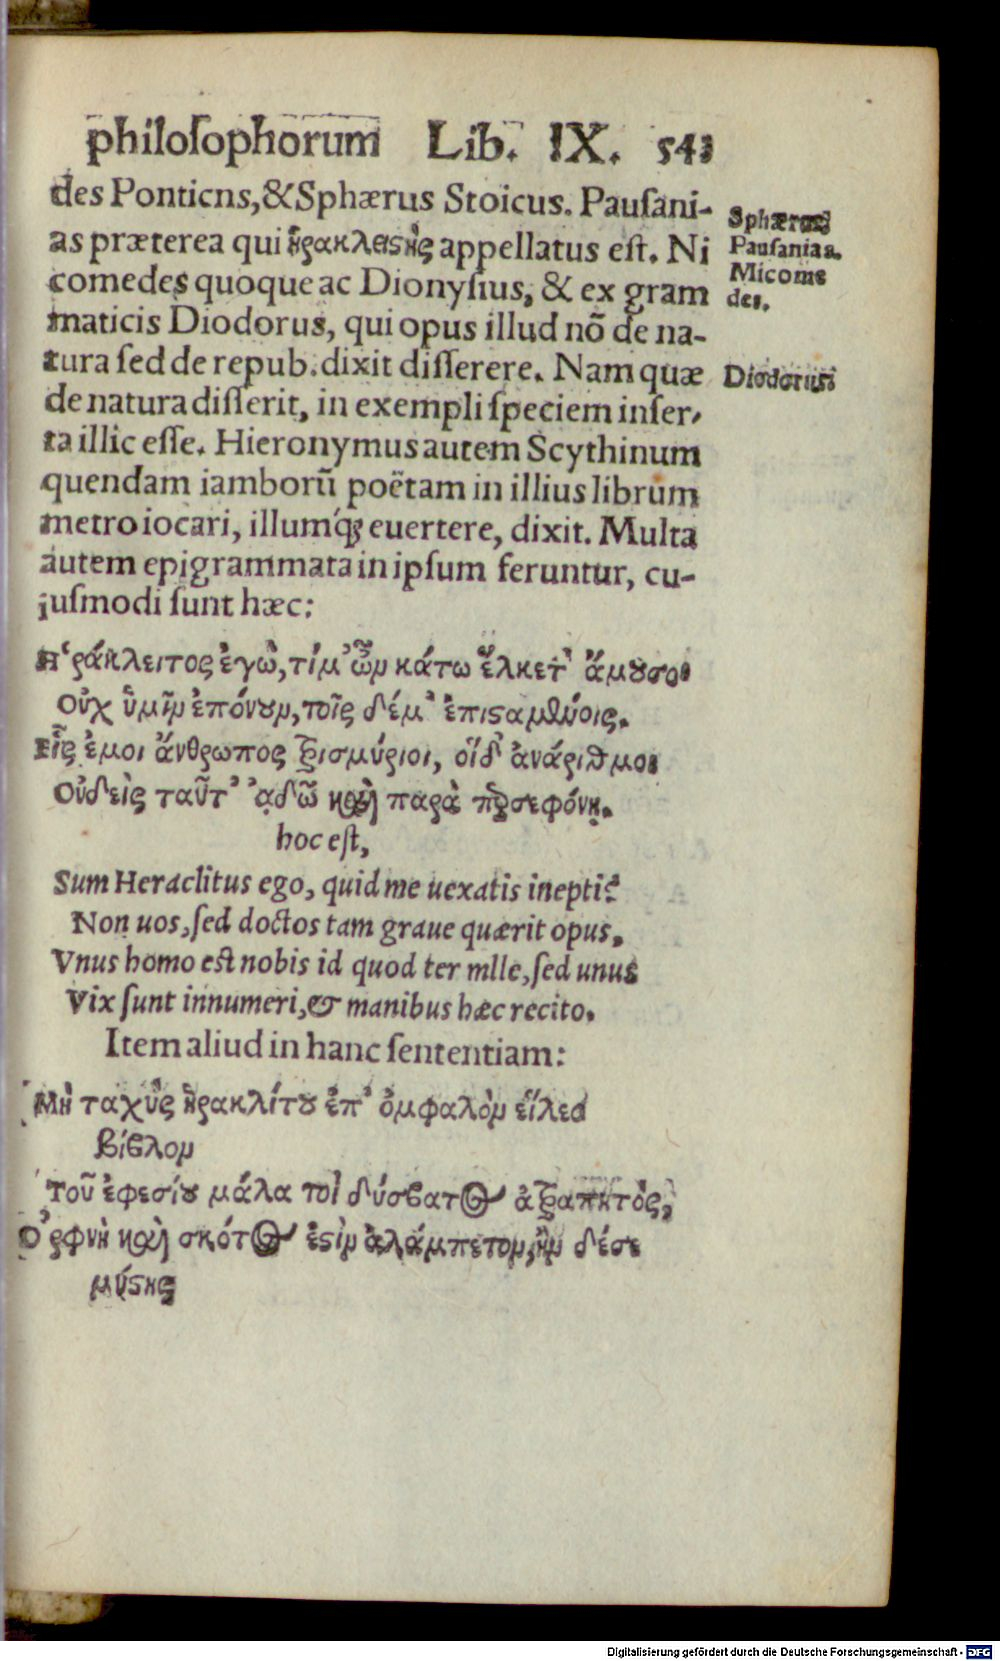 philoſophorum Lib. IX. 543
des Ponticns, & Sphærus Stoicus. Pauſani-
as præterea qui ἡρακλειϛὴς appellatus eſt. Ni
comedes quoque ac Dionyſius, & ex gram
maticis Diodorus, qui opus illud nõ de na-
tura ſed de repub. dixit diſſerere. Nam quæ
de natura diſſerit, in exempli ſpeciem inſer-
ta illic eſſe. Hieronymus autem Scythinum
quendam iamborũ poëtam in illius librum
metro iocari, illumq́ꝫ euertere, dixit. Multa
autem epigrammata in ipſum feruntur, cu-
juſmodi ſunt hæc:
Sphærus
Pauſanias.
Micome
des.
Diodorus
Ἡράκλειτος ἐγὼ, τί μ' ὦν κάτω ἕλκετ' ἄμȣσοι
Οὐχ ὑμῖν ἐπόνȣν, τοῖς δέ μ' ἐπιϛαμένοις.
Εἷς ἐμοι ἄνθρωπος τρισμύριοι, οἵδ' ἀνάριθμοι
Οὐδεὶς ταῦτ' ᾀδῶ καὶ παρὰ προσεφόνῃ.
hoc eſt,
Sum Heraclitus ego, quid me uexatis inepti?
Non uos, ſed doctos tam graue quærit opus.
Vnus homo eſt nobis id quod ter mlle, ſed unus
Vix ſunt innumeri, & manibus hæc recito.
Item aliud in hanc ſententiam:
Μὴ ταχὺς ἡρακλίτȣ ἐπ' ὀμφαλὸν εἵλεα
βίϐλον
Τοῦ ἐφεσίȣ μάλα τοὶ δύσϐατος ἀτραπητὸς,
Ὀρφνὴ καὶ σκότος ἐϛὶν ἀλάμπετον, ἢν δέσε
μύϛης
Digitalisierung gefördert durch die Deutsche Forschungsgemeinschaft - DFG